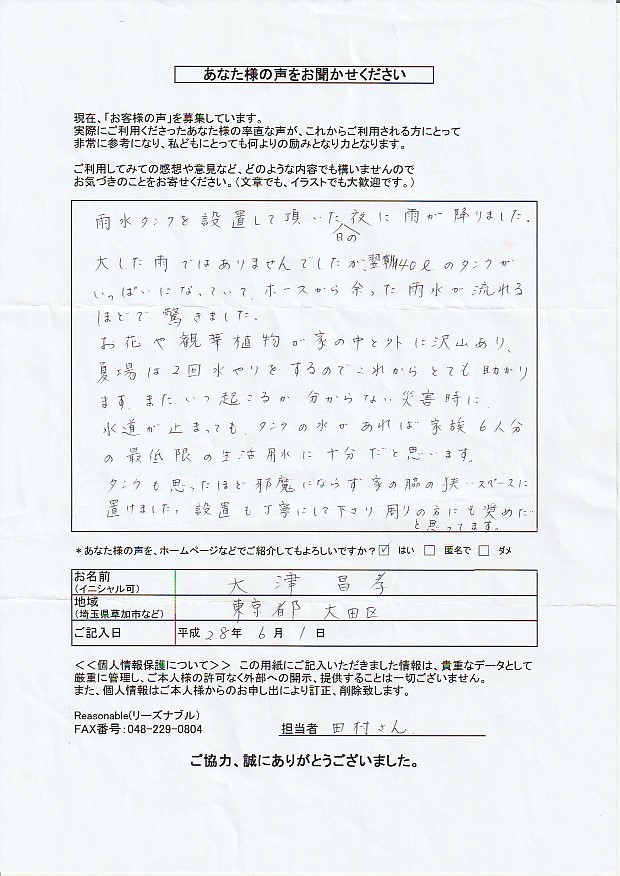 あなた様の声をお聞かせください
現在、「お客様の声」を募集しています。
実際にご利用くださったあなた様の率直な声が、これからご利用される方にとって
非常に参考になり、私どもにとっても何よりの励みとなり力となります。
ご利用してみての感想や意見など、どのような内容でも構いませんので
お気づきのことをお寄せください。(文章でも、イラストでも大歓迎です。)
雨水タンクを設置して頂いた日の夜に雨が降りました。
大した雨ではありませんでしたが、翌朝140ℓのタンクが
いっぱいになっていて、ホースから余った雨水が流れる
ほどで驚きました。
お花や観葉植物が家の中と外に沢山あり、
夏場は2回水やりをするのでこれからとても助かり
ます。またいつ起こるか分からない災害時に
水道が止まっても、タンクの水があれば家族6人分
の最低限の生活用水に十分だと思います。
タンクも思ったほど邪魔にならず家の脇の狭いスペースに
置けました。設置も丁寧にして下さり周りの方にも奨めたい
と思ってます。
*あなた様の声を、ホームページなどでご紹介してもよろしいですか?☑ はい □ 匿名で □ ダメ
お名前
(イニシャル可) 大津 昌孝
地域
(埼玉県草加市など) 東京都 大田区
ご記入日 平成28年6月1日
<<個人情報保護について>> この用紙にご記入いただきました情報は、貴重なデータとして
厳重に管理し、ご本人様の許可なく外部への開示、提供することは一切ございません。
また、個人情報はご本人様からのお申し出により訂正、削除致します。
Reasonable(リーズナブル)
FAX番号:048-229-0804 担当者 田村さん
ご協力、誠にありがとうございました。